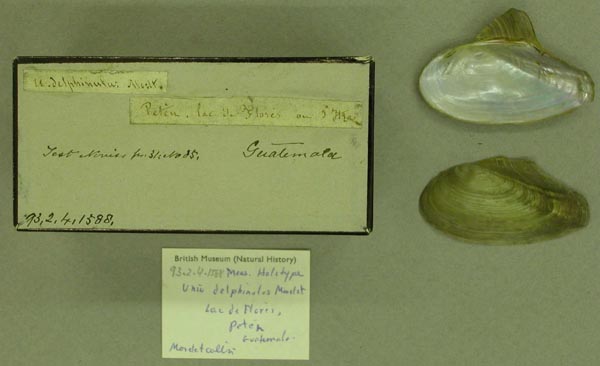 U. delphinulus Morlt.
Petén, lac de Flores ou d'Itza
Test Noviss for. 31. No 35. Guatemala
93,2,4,1588,
British Museum (Natural History)
93.2.4.1588 Meas. Holotype
Unio delphinulus Morelet
Lac de Flores,
Petén
Guatemala.
Morelet colln